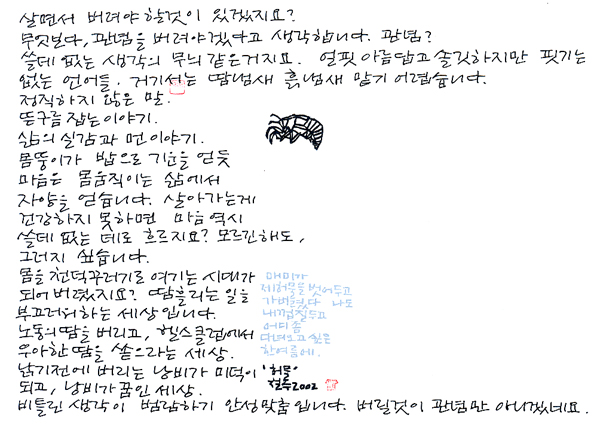 살면서 버려야 할것이 있겠지요?
무엇보다, 관념을 버려야겠다고 생각합니다. 관념?
쓸데 없는 생각의 무늬 같은거지요. 얼핏 아름답고 솔깃하지만 핏기는
없는 언어들. 거기서는 땀냄새 흙냄새 맡기 어렵습니다.
정직하지 않은 말.
뜬구름 잡는 이야기.
삶의 실감과 먼 이야기.
몸뚱이가 밥으로 기운을 얻듯
마음은 몸움직이는 삶에서
자양을 얻습니다. 살아가는게
건강하지 못하면 마음 역시
쓸데 없는 데로 흐르지요? 모르긴해도,
그러지 싶습니다.
몸을 천덕꾸러기로 여기는 시대가
되어 버렸지요? 땀흘리는 일을
부끄러워하는 세상입니다.
노동의 땀을 버리고, 헬스클럽에서
우아한 땀을 쏟으라는 세상.
낡기전에 버리는 낭비가 미덕이
되고, 낭비가 꿈인 세상.
비틀린 생각이 범람하기 안성맞춤입니다. 버릴것이 관념만 아니겠네요.
매미가
제허물을 벗어두고
가버렸다 나도
내껍질두고
어디 좀
다녀오고 싶은
한여름에.
'허물'
철수2002